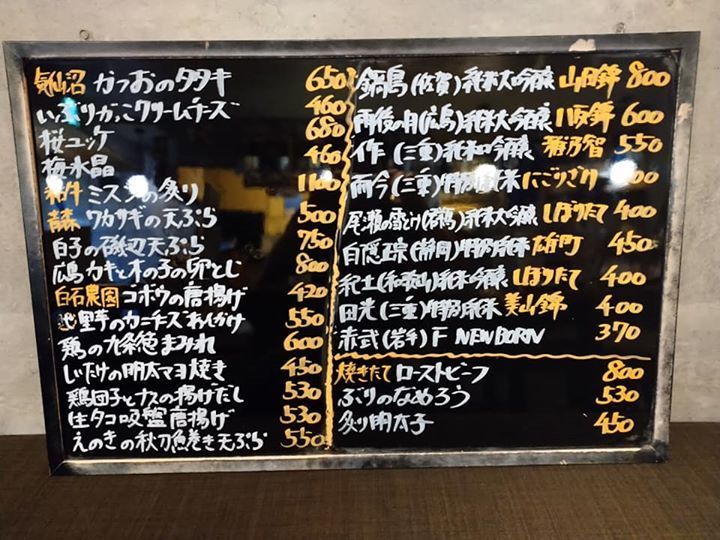 気仙沼 かつおのタタキ 650
いぶりがっこクリームチーズ 460
桜ユッケ 680
梅水晶 460
和牛 ミスジの炙り 1100
青森 ワカサギの天ぷら 500
白子の磯辺天ぷら 750
広島カキと木の子の卵とじ 800
白石農園 ゴボウの唐揚げ 420
里芋のカニチーズあんかけ 550
鶏の九条葱まみれ 600
しいたけの明太マヨ焼き 450
鶏団子とナスの揚げだし 530
生タコ吸盤唐揚げ 530
えのきの秋刀魚巻き天ぷら 550
鍋島(佐賀)純米大吟醸 山田錦 800
雨後の月(広島)純米大吟醸 八反錦 600
作(三重)純米吟醸 雅乃智 550
而今(三重)特別純米 にごりざけ
尾瀬の雪どけ(群馬)純米大吟醸 しぼりたて 400
白隠正宗(静岡)特別純米 雄町 450
紀土(和歌山)純米吟醸 しぼりたて 400
田光(三重)特別純米 美山錦 400
赤武(岩手)F NEWBORN 370
焼きたて ローストビーフ 800
ぶりのなめろう 530
炙り明太子 450